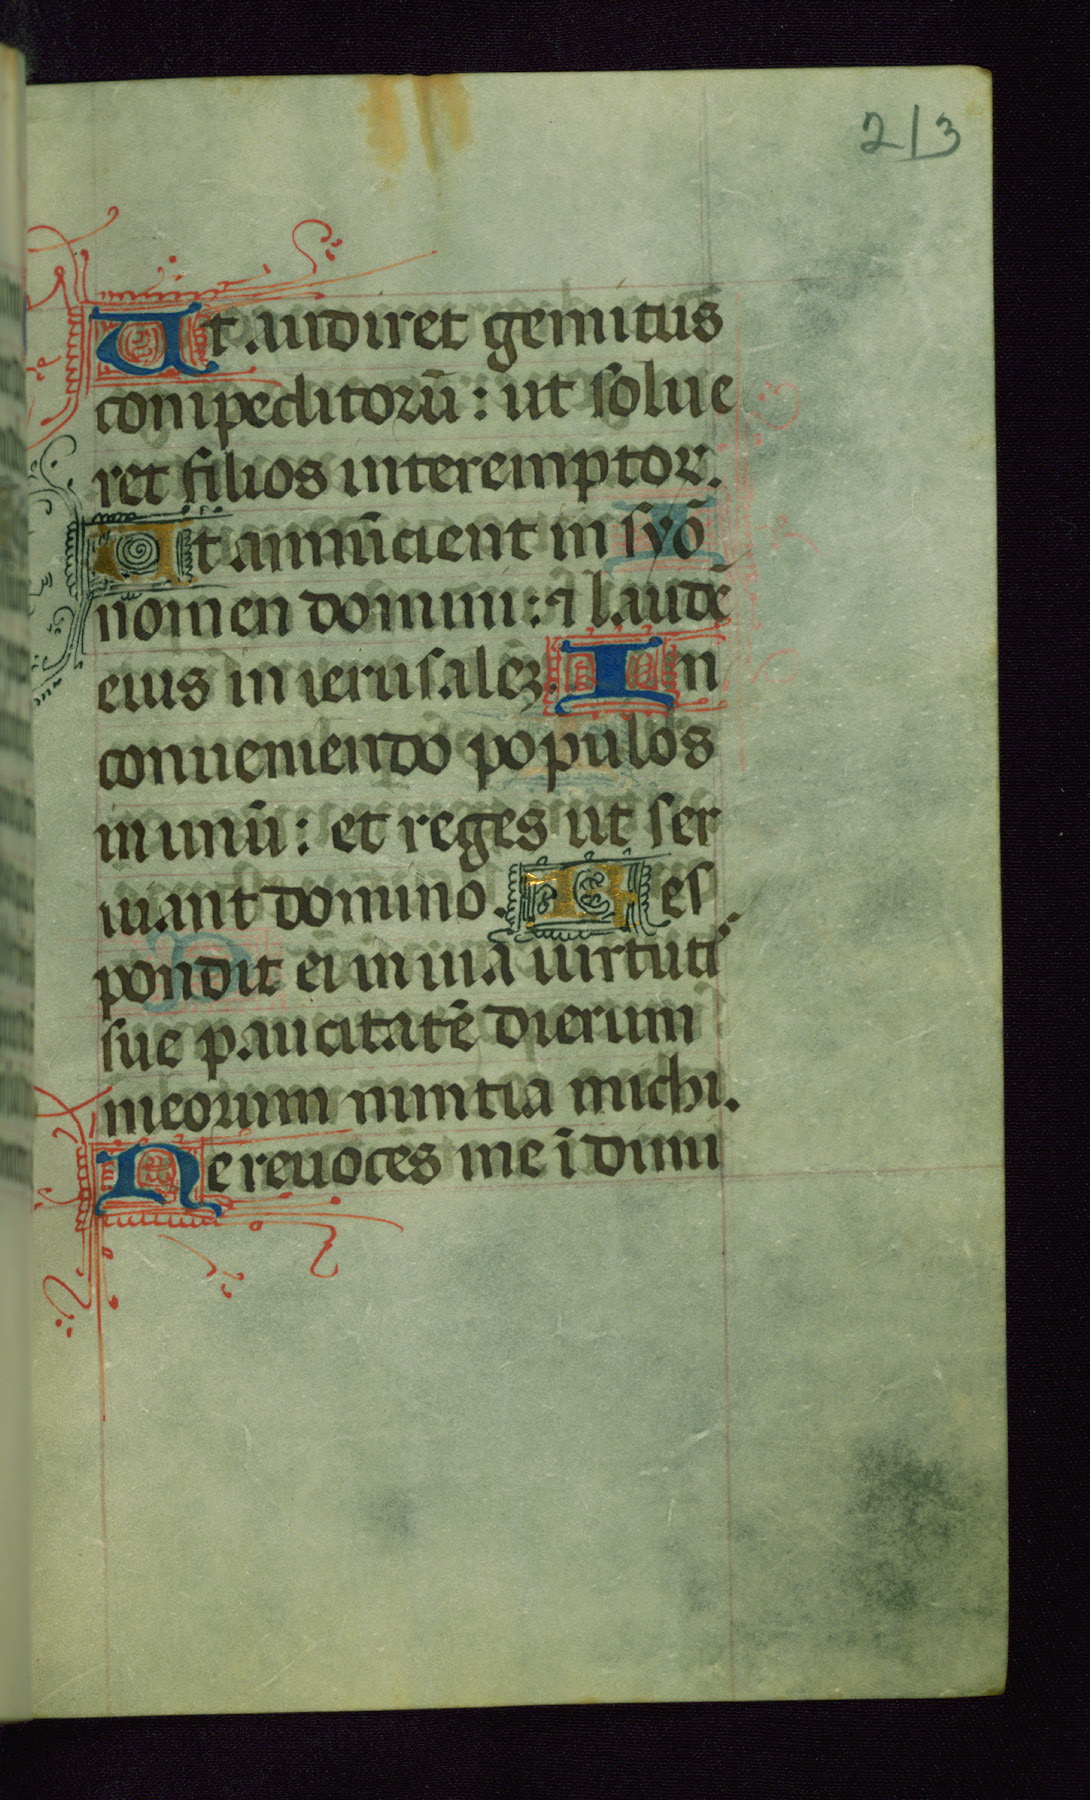 213
Ut audiret gemitus
compeditorū: ut solue
ret filios interemptor.
Ut annūcient in syō
nomen domini: ⁊ laudē
eius in ierusalēz. In
conueniendo populos
in unū: et reges ut ser
uiant domino. Res
pondit ei in uia uirtuti᷒
sue paucitatē dierum
meorum nuntia michi.
Ne reuoces me ī dimi